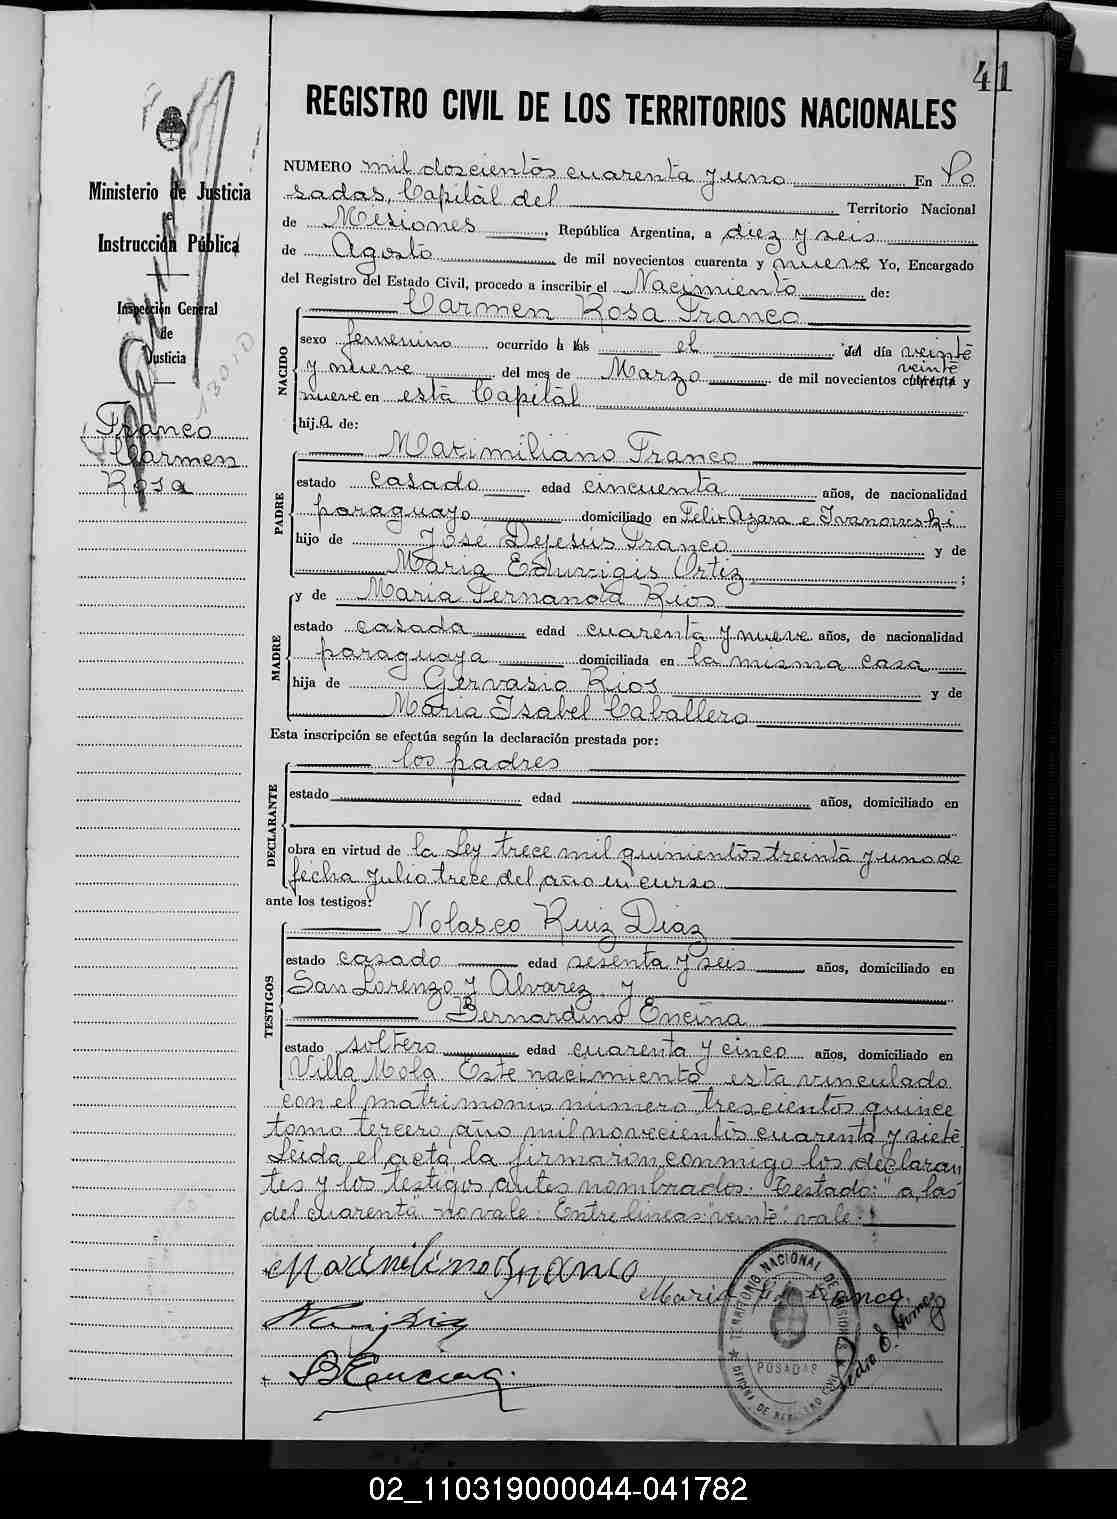 41
REGISTRO CIVIL DE LOS TERRITORIOS NACIONALES
Ministerio de Justicia
e
Instrucción Pública
Inspección General
de
Justicia
13010
Franco
Carmen
Rosa
NUMERO mil doscientos cuarenta y uno En Po
sadas, Capital del Territorio Nacional
de Misiones, República Argentina, a diez y seis
de Agosto de mil novecientos cuarenta y nueve Yo, Encargado
del Registro del Estado Civil, procedo a inscribir el Nacimiento de:
NACIDO
Carmen Rosa Franco
sexo femenino ocurrido a las el del día veinte
veinte
y nueve del mes de Marzo de mil novecientos cuarenta y
nueve en esta Capital
hija de:
PADRE
Maximiliano Franco
estado casado edad cincuenta años, de nacionalidad
paraguayo domiciliado en Felix Azara e Ivanowski
hijo de José Dejesús Franco y de
Maria Eduvigis Ortiz ;
MADRE
y de Maria Fernanda Rios
estado casada edad cuarenta y nueve años, de nacionalidad
paraguaya domiciliada en la misma casa
hija de Gervasio Rios y de
Maria Isabel Caballero
Esta inscripción se efectúa según la declaración prestada por:
DECLARANTE
los padres
estado edad años, domiciliado en
obra en virtud de la Ley trece mil quinientos treinta y uno de
fecha Julio trece del año en curso
ante los testigos:
TESTIGOS
Nolasco Ruiz Diaz
estado casado edad sesenta y seis años, domiciliado en
San Lorenzo y Alvarez, y
Bernardino Encina
estado soltero edad cuarenta y cinco años, domiciliado en
Villa Mola Este nacimiento esta vinculado
con el matrimonio número trescientos quince
tomo tercero año mil novecientos cuarenta y siete
Leida el acta, la firmaron conmigo los declaran
tes y los testigos antes nombrados. Testado: "a las
del cuarenta" no vale. Entre lineas: "veinte" vale.
Maximiliano Franco
Maria de Franco
N Ruiz Diaz
B Encina
Pedro E. Gomez
TERRITORIO NACIONAL DE MISIONES
POSADAS
OFICINA DE REGISTRO CIVIL
02_110319000044-041782